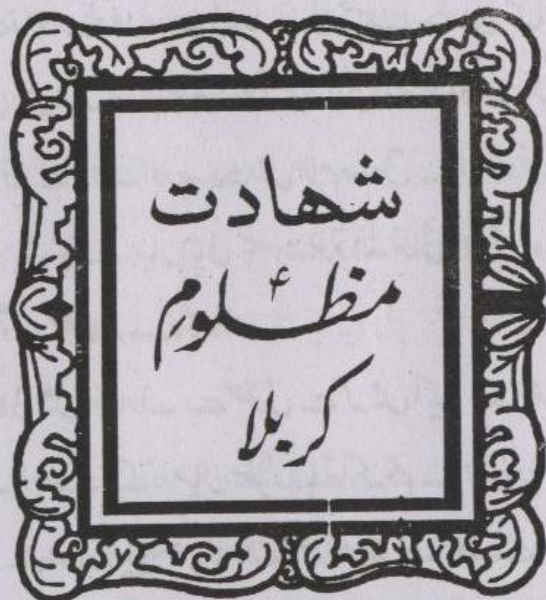 شهادت
مظلومِ ؑ
کربلا